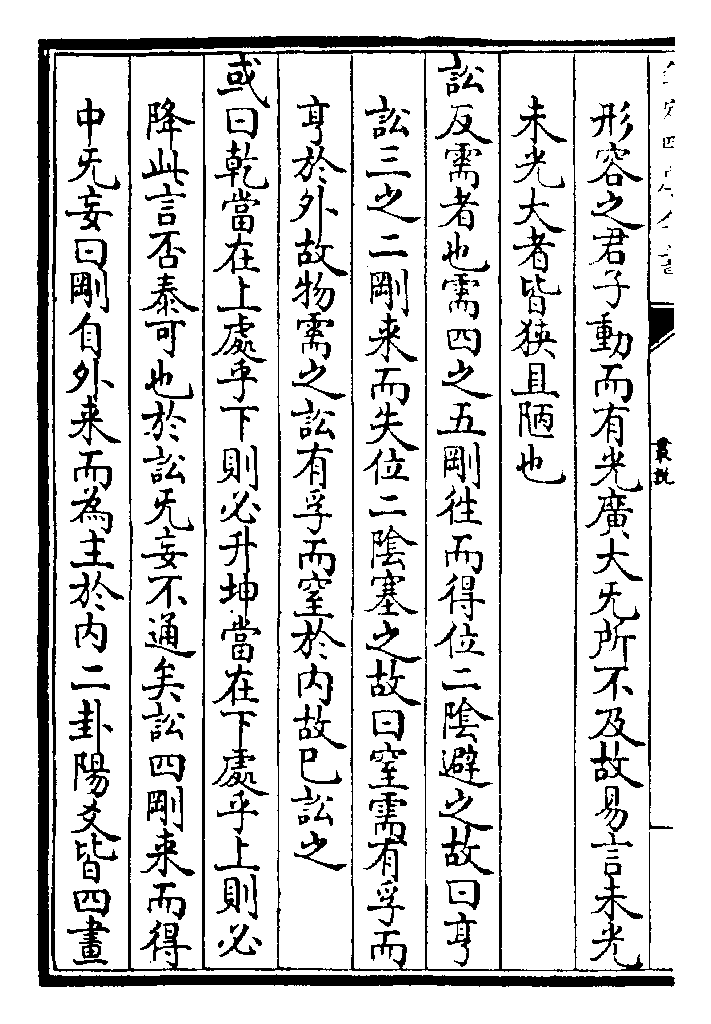 形容之君子動而有光廣大旡所不及故易言未光
未光大者皆狹且陋也
訟反需者也需四之五剛徃而得位二陰避之故曰亨
訟三之二剛来而失位二陰塞之故曰窒需有孚而
亨於外故物需之訟有孚而窒於内故已訟之
或曰乾當在上處乎下則必升坤當在下處乎上則必
降此言否泰可也於訟旡妄不通矣訟四剛来而得
中旡妄曰剛自外来而為主於内二卦陽爻皆四畫
叢説